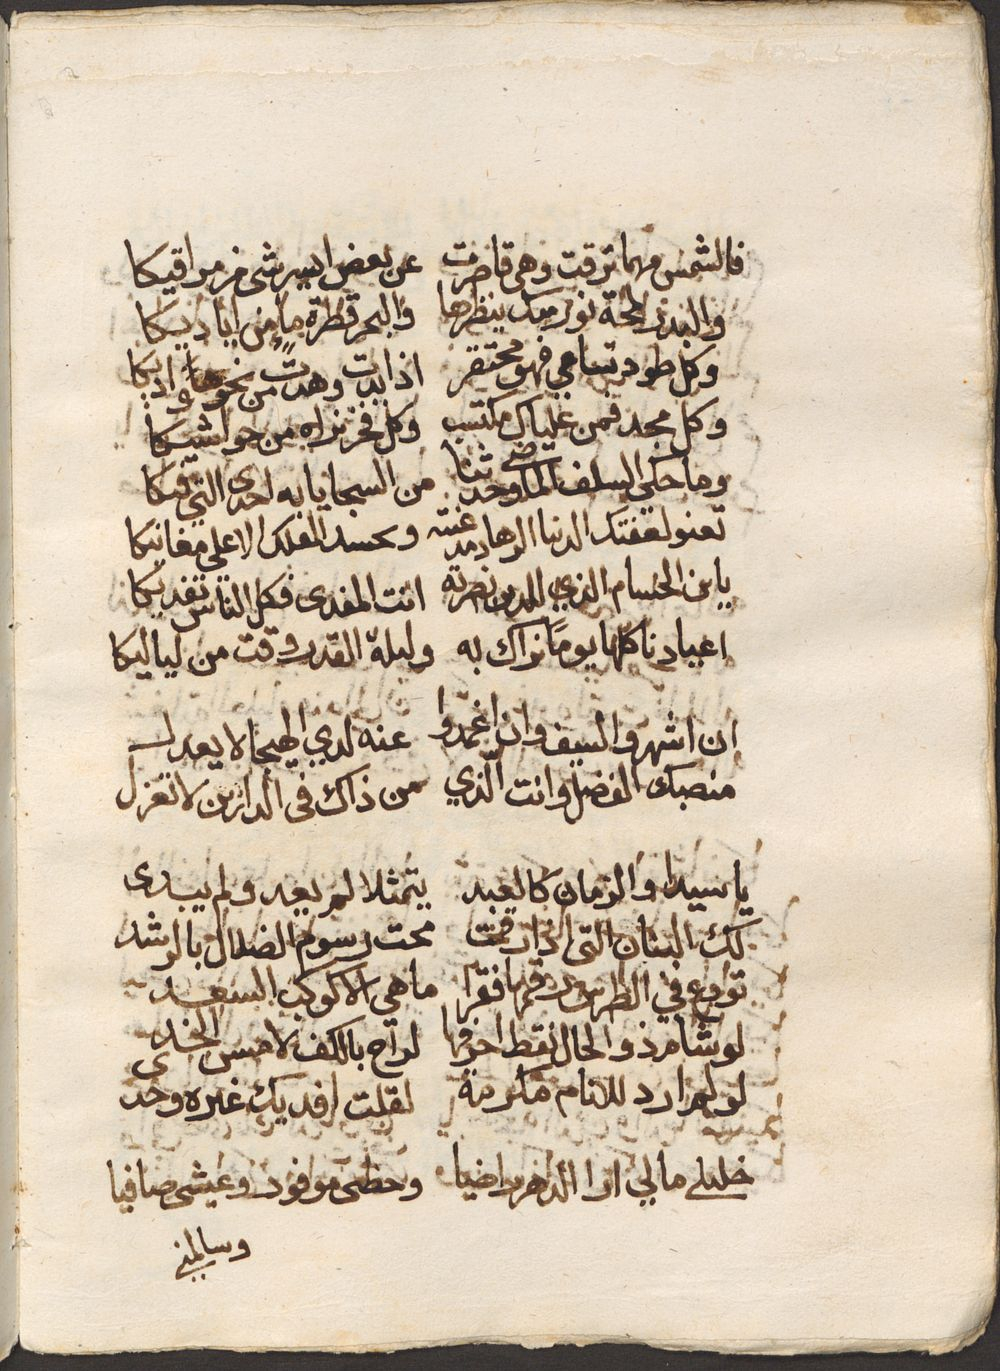 فالشمس مهما ترقت وهي قاصرت عن بعض ايسر شى من مراقيكا
والبدر لمحة نور منك ينظرها والبحر قطرة ماء من اياديكا
وكل طود تسامي فهو محتقر اذا بدت وهدت من نحوها واديكا
وكل مجد فمن علياك مكتسب وكل فخر نراه من حواشيكا
وما حكى السلف الماضي ثنا وحد من السجايا به احدى التي فيكا
تعنو لعفتك الدنيا الرهاد مد غنت وتحسد الفلك الاعلى مغانيكا
يا بن الحسام الذي للدين نصرته انت المفدى فكل الناس تفديكا
اعيادنا كلها يوما نراك به وليلة القدر وقت من لياليكا
ان اشهروا السيف وان اغمدوا عنه لدي الهيجا لا يعدل
منصبك الفضل وانت الذي من ذاك فى الدارين لا تعزل
يا سيدا والزمان كالعبد يتمثلا لم يعد ولم يبدى
لك البنان التى اذا رقمت محت رسوم الضلال بالرشد
توقع في الطرس رقمها فقرا ما هي الا كوكب السعد
لو شام ذو الخال نقط احرفها لراح بالكف لامس الخد
لو لم ارد للانام مكرمة لقلت افديك غيره وحدى
خليلي ما لي ارا الدهر راضيا وحظى موفور وعيشى صافيا
وسالمني